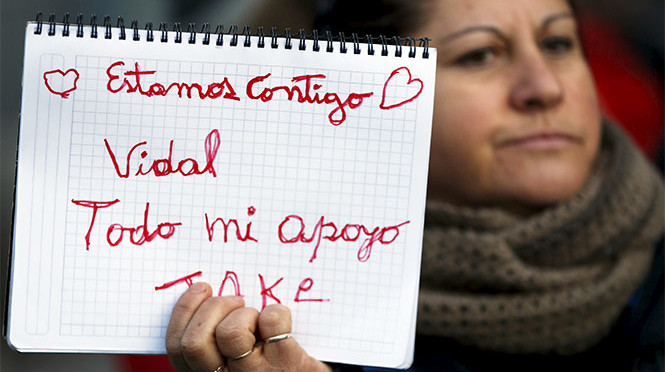 Estamos Contigo
Vidal
Todo mi apoyo
JAKe